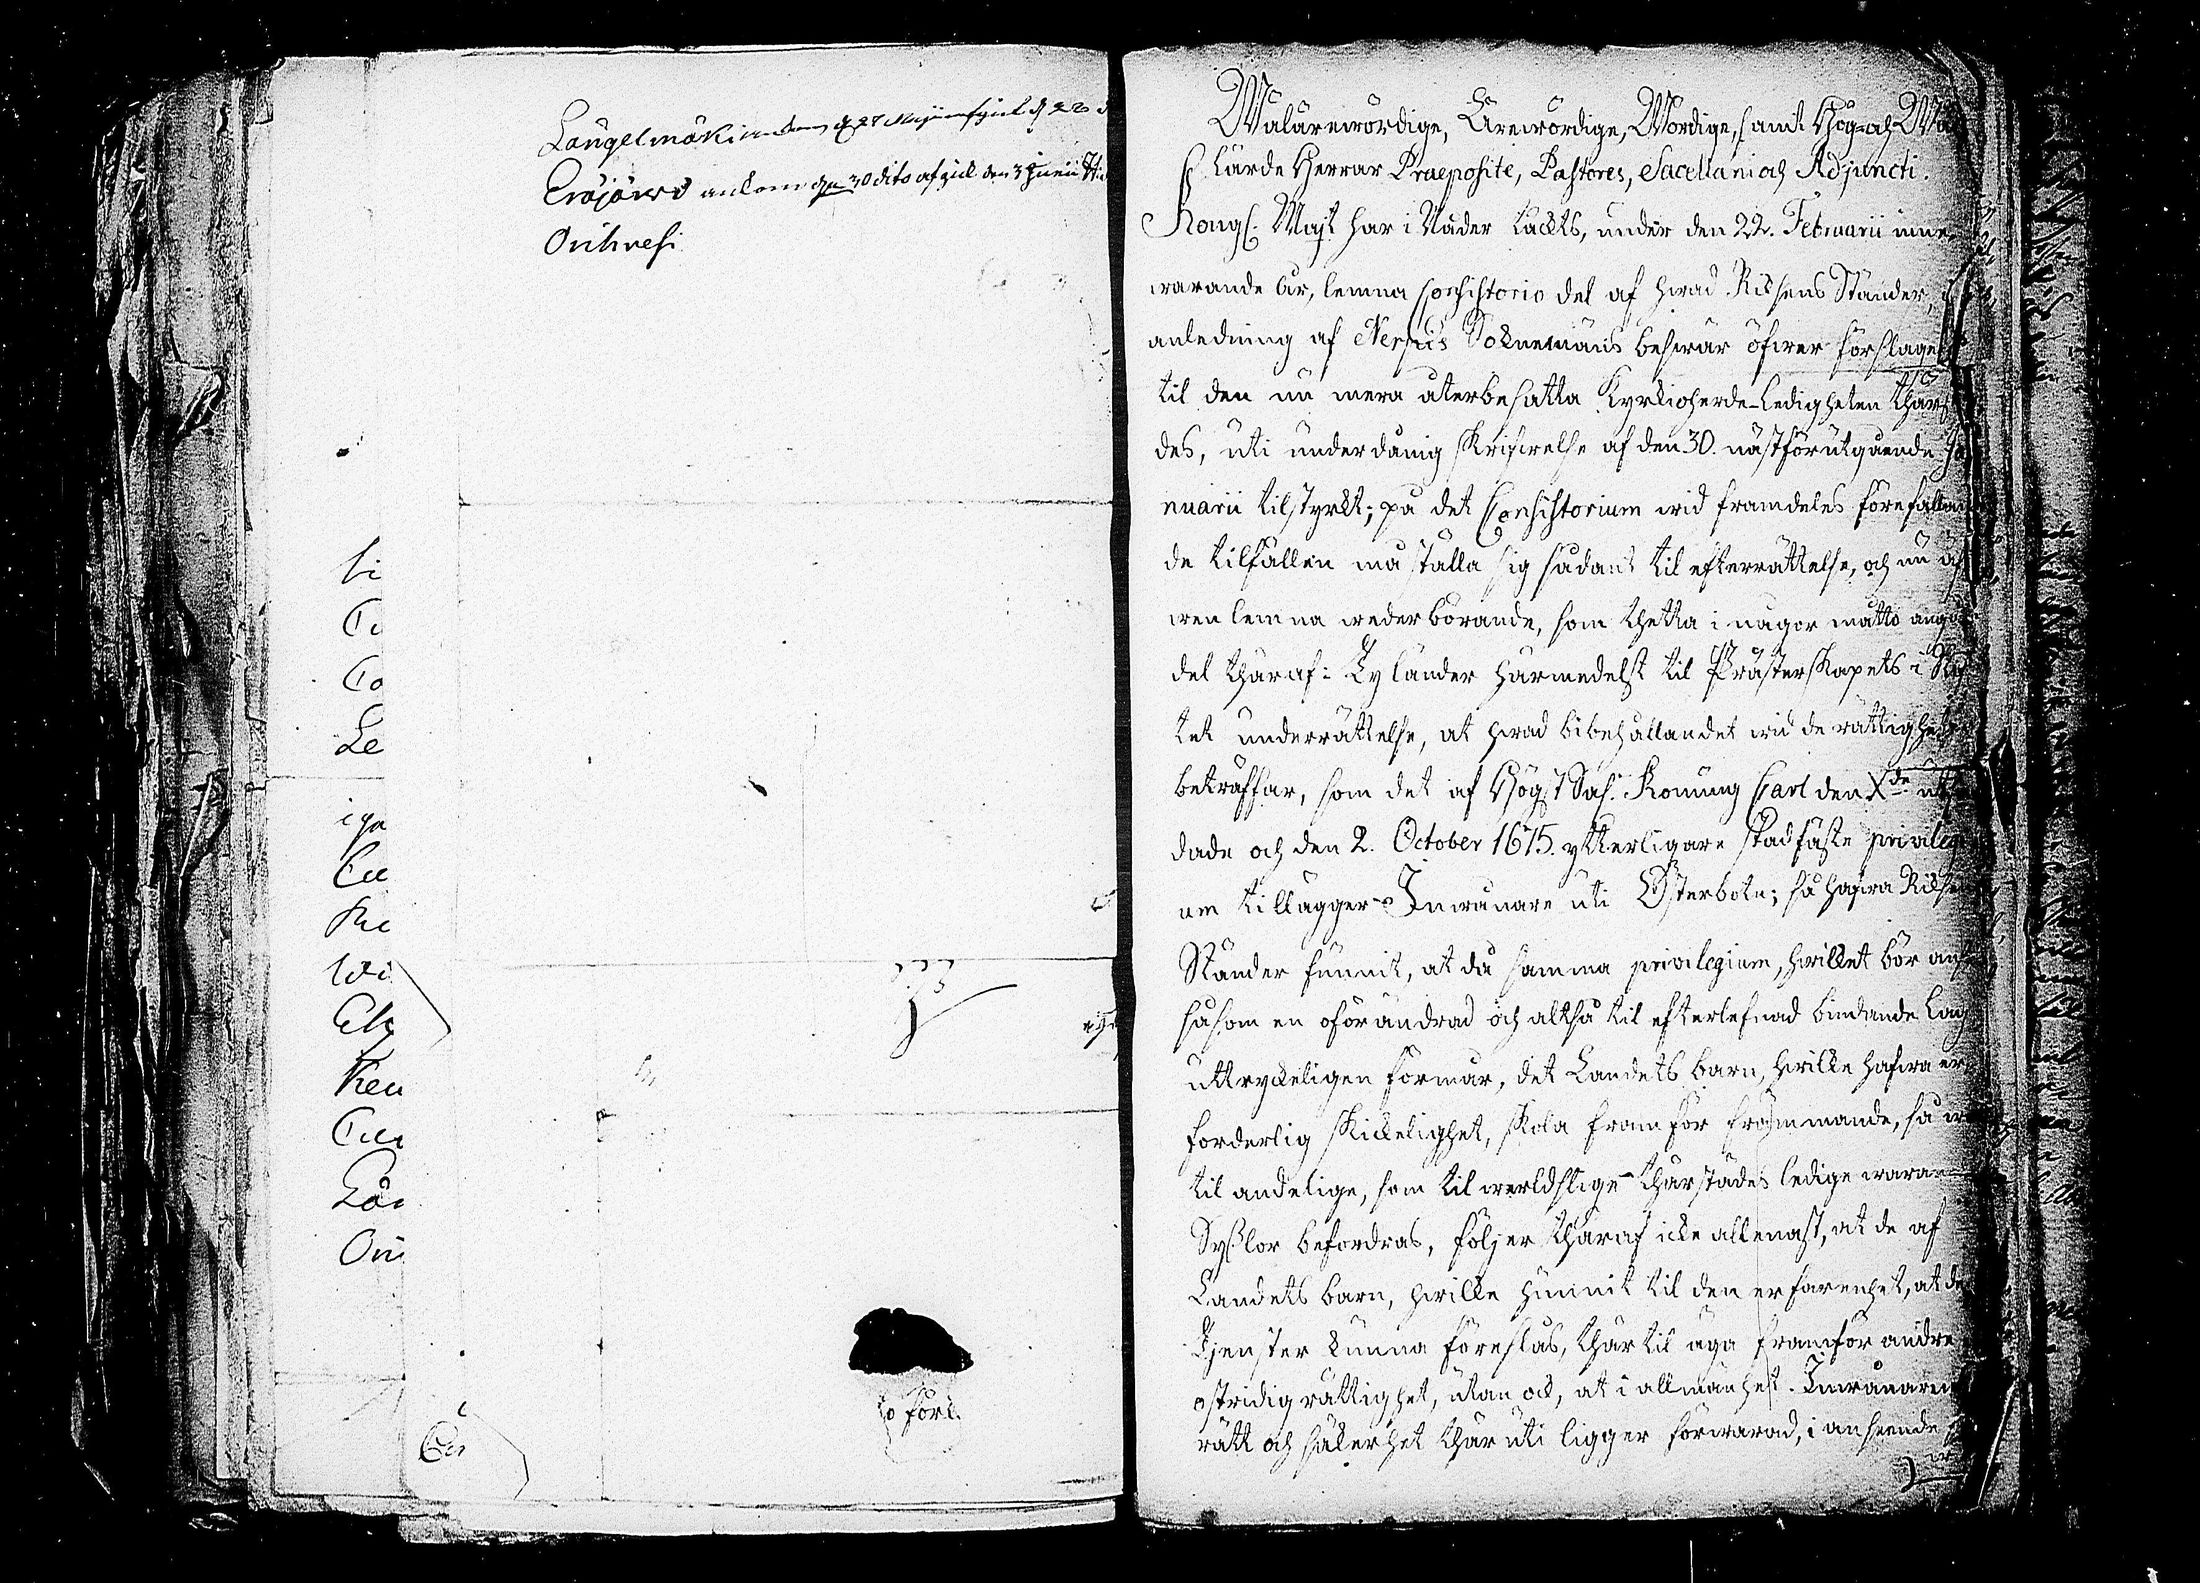 Längelmäki ankom d 27 Maji afgick d 28 d
Eräjärvi ankom den 30 dito afgick den 3 Junii
Orihvesi
Li
Co
Le
Ke
Wi
Ken
Län
Ori
to förl.
Walärewördige, Ärewördige, Wördige, samt Hög- och Wäl
Lärde Herrar Praeposite, Pastores, Sacellani och Adjuncti.
Kongl. Maj:t har i Nåder täckts, under den 22. Februarii inne-
warande år, lemna Consistorio del af hwad Riksens Ständer, i
anledning af Nerpiis Soknemäns beswär öfwer förslaget
til den nu mera återbesatta Kyrkioherde-Ledigheten thärst
des, uti underdånig skrifwelse af den 30. nästförutgående Ja
nuarii tilstyrkt; på det Consistorium wid framdeles förefallan
de tilfällen må ställa sig sådant til efterrättelse, och nu äf
wen lemna wederbörande, som thetta i någor måtto angår
del thäraf: Ty länder härmedelst til Prästerskapets i Stif
tet underrättelse, at hwad bibehållandet wid de rättigheter
beträffar, som det af Högst Sal. Konung Carl den X:de utfär
dade och den 2. October 1675. ytterligare stadfäste privilegi
um tillägger Inwånare uti Österbotn; så hafwa Riksens
Ständer funnit, at då samma privilegium, hwilket bör anses
såsom en oförändrad och altså til efterlefnad bindande Lag
uttryckeligen förmår, det Landets barn, hwilke hafwa er
forderlig skickelighet, skola framför främmande, så wäl
til andelige, som til werldslige thärstädes ledige waran
Sysslor befordras, följer thäraf icke allenast, at de af
Landets barn, hwilke hunnit til den erfarenhet, at de
Tjenster kunna föreslås, thärtil äga framför andre
ostridig rättighet, utan ock, at i allmänhet Inwånarenas
rätt och säkerhet thäruti ligger förwarad, i anseende